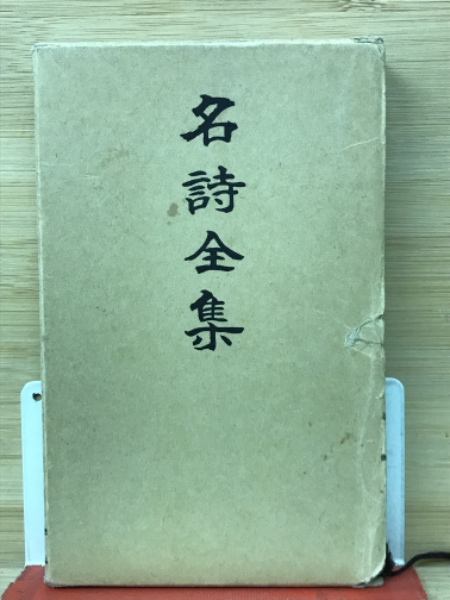 名詩全集